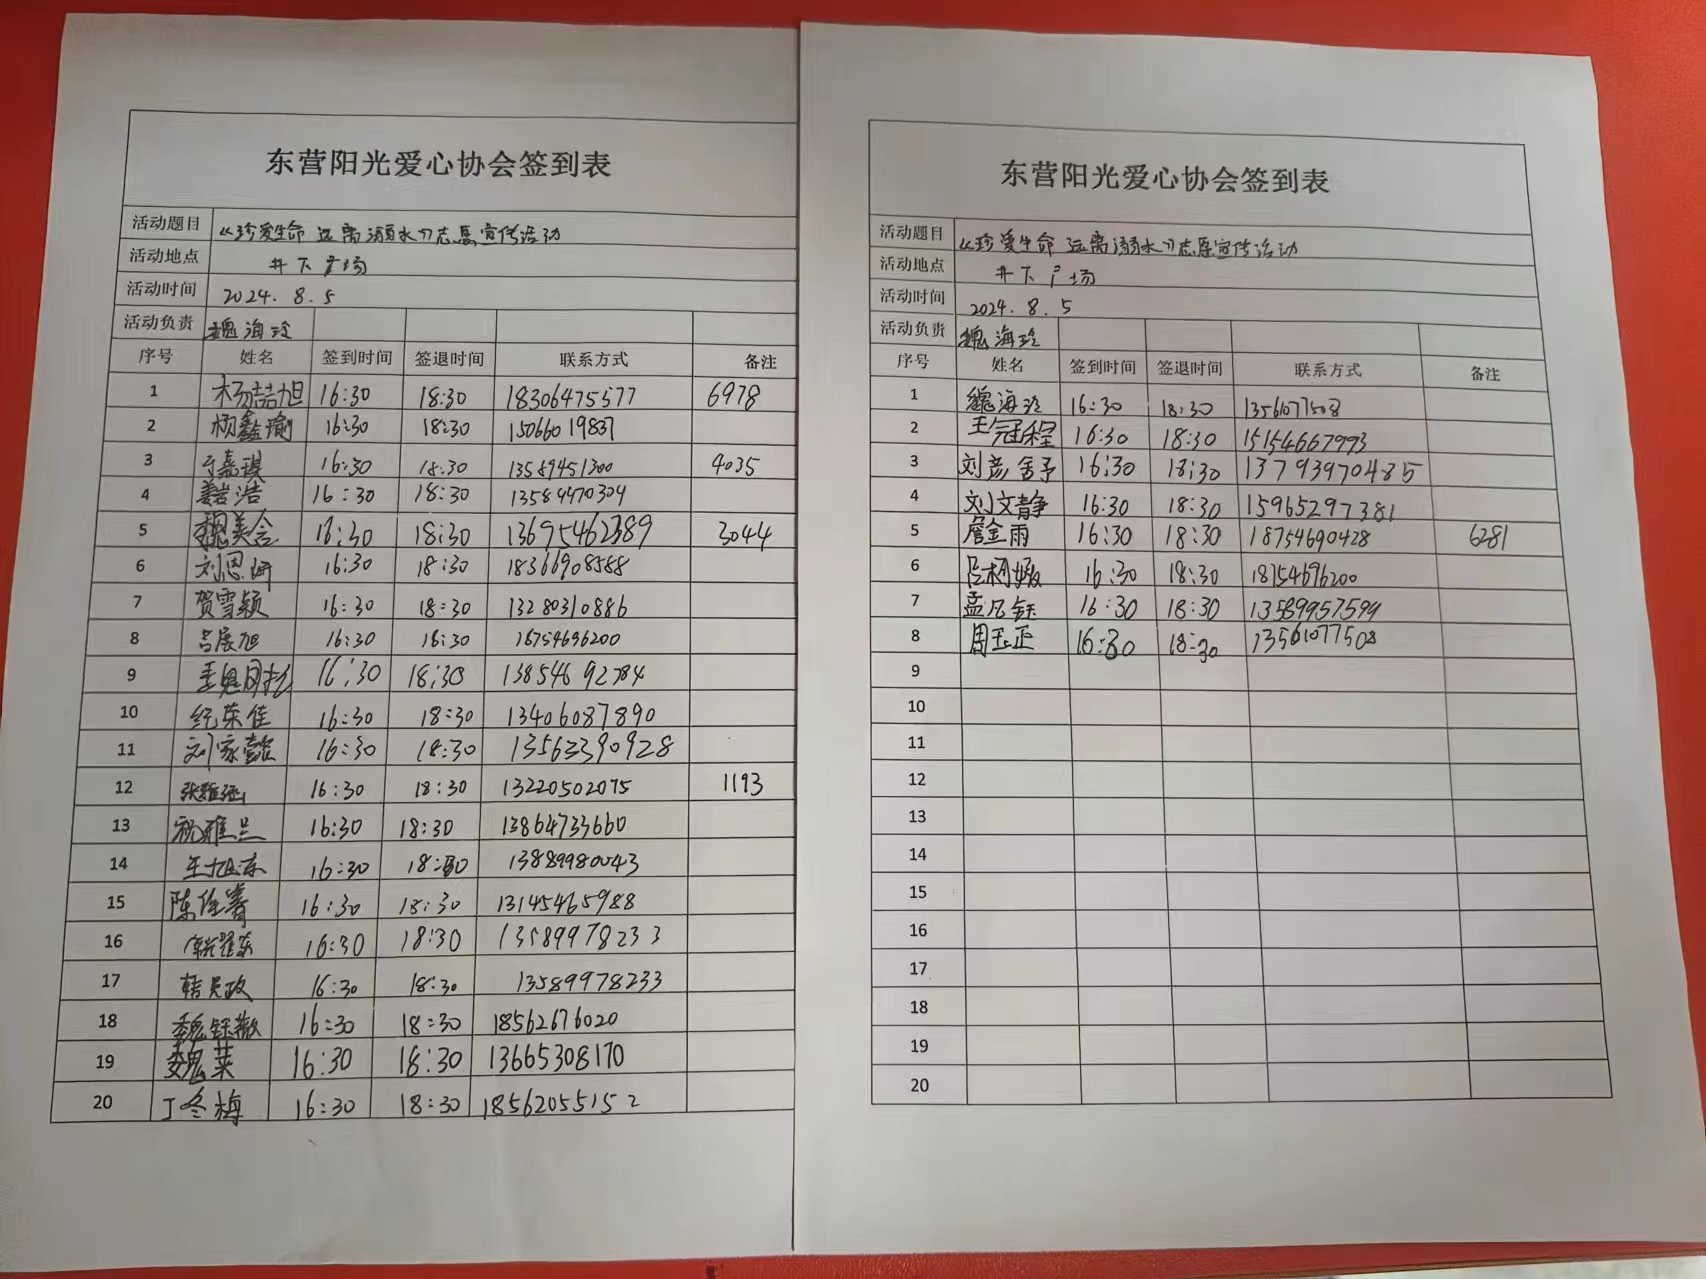 东营阳光爱心协会签到表
活动题目 《珍爱生命 远离溺水》志愿宣传活动
活动地点 井下广场
活动时间 2024.8.5
活动负责 魏海玲
序号 姓名 签到时间 签退时间 联系方式 备注
1 杨喆旭 16:30 18:30 18306475577 6978
2 杨鑫瑜 16:30 18:30 15066019837
3 于嘉琪 16:30 18:30 13589451300 4035
4 姜岩浩 16:30 18:30 13584470304
5 魏美含 16:30 18:30 13695462389 3044
6 刘思妍 16:30 18:30 18366908588
7 贺雪颖 16:30 18:30 13280310886
8 吕展旭 16:30 18:30 18754696200
9 16:30 18:30 13854692784
10 纪荣佳 16:30 18:30 13406087890
11 刘家懿 16:30 18:30 13563390928
12 张雅涵 16:30 18:30 13220502075 1193
13 祝雅兰 16:30 18:30 13864733660
14 王旭东 16:30 18:30 13889980043
15 陈佳 16:30 18:30 13145465988
16 16:30 18:30 13589978233
17 韩昊政 16:30 18:30 13589978233
18 魏钰薇 16:30 18:30 18562676020
19 魏英 16:30 18:30 13665308170
20 丁冬梅 16:30 18:30 18562055152
东营阳光爱心协会签到表
活动题目 《珍爱生命 远离溺水》志愿宣传活动
活动地点 井下广场
活动时间 2024.8.5
活动负责 魏海玲
序号 姓名 签到时间 签退时间 联系方式 备注
1 魏海玲 16:30 18:30 13561077508
2 王冠程 16:30 18:30 15154667993
3 刘彦舍予 16:30 18:30 13793970485
4 刘文静 16:30 18:30 15965297381
5 詹金雨 16:30 18:30 18754690428 6281
6 吕柯媛 16:30 18:30 18754696200
7 孟凡钰 16:30 18:30 13589957599
8 周玉正 16:30 18:30 13561077508
9
10
11
12
13
14
15
16
17
18
19
20